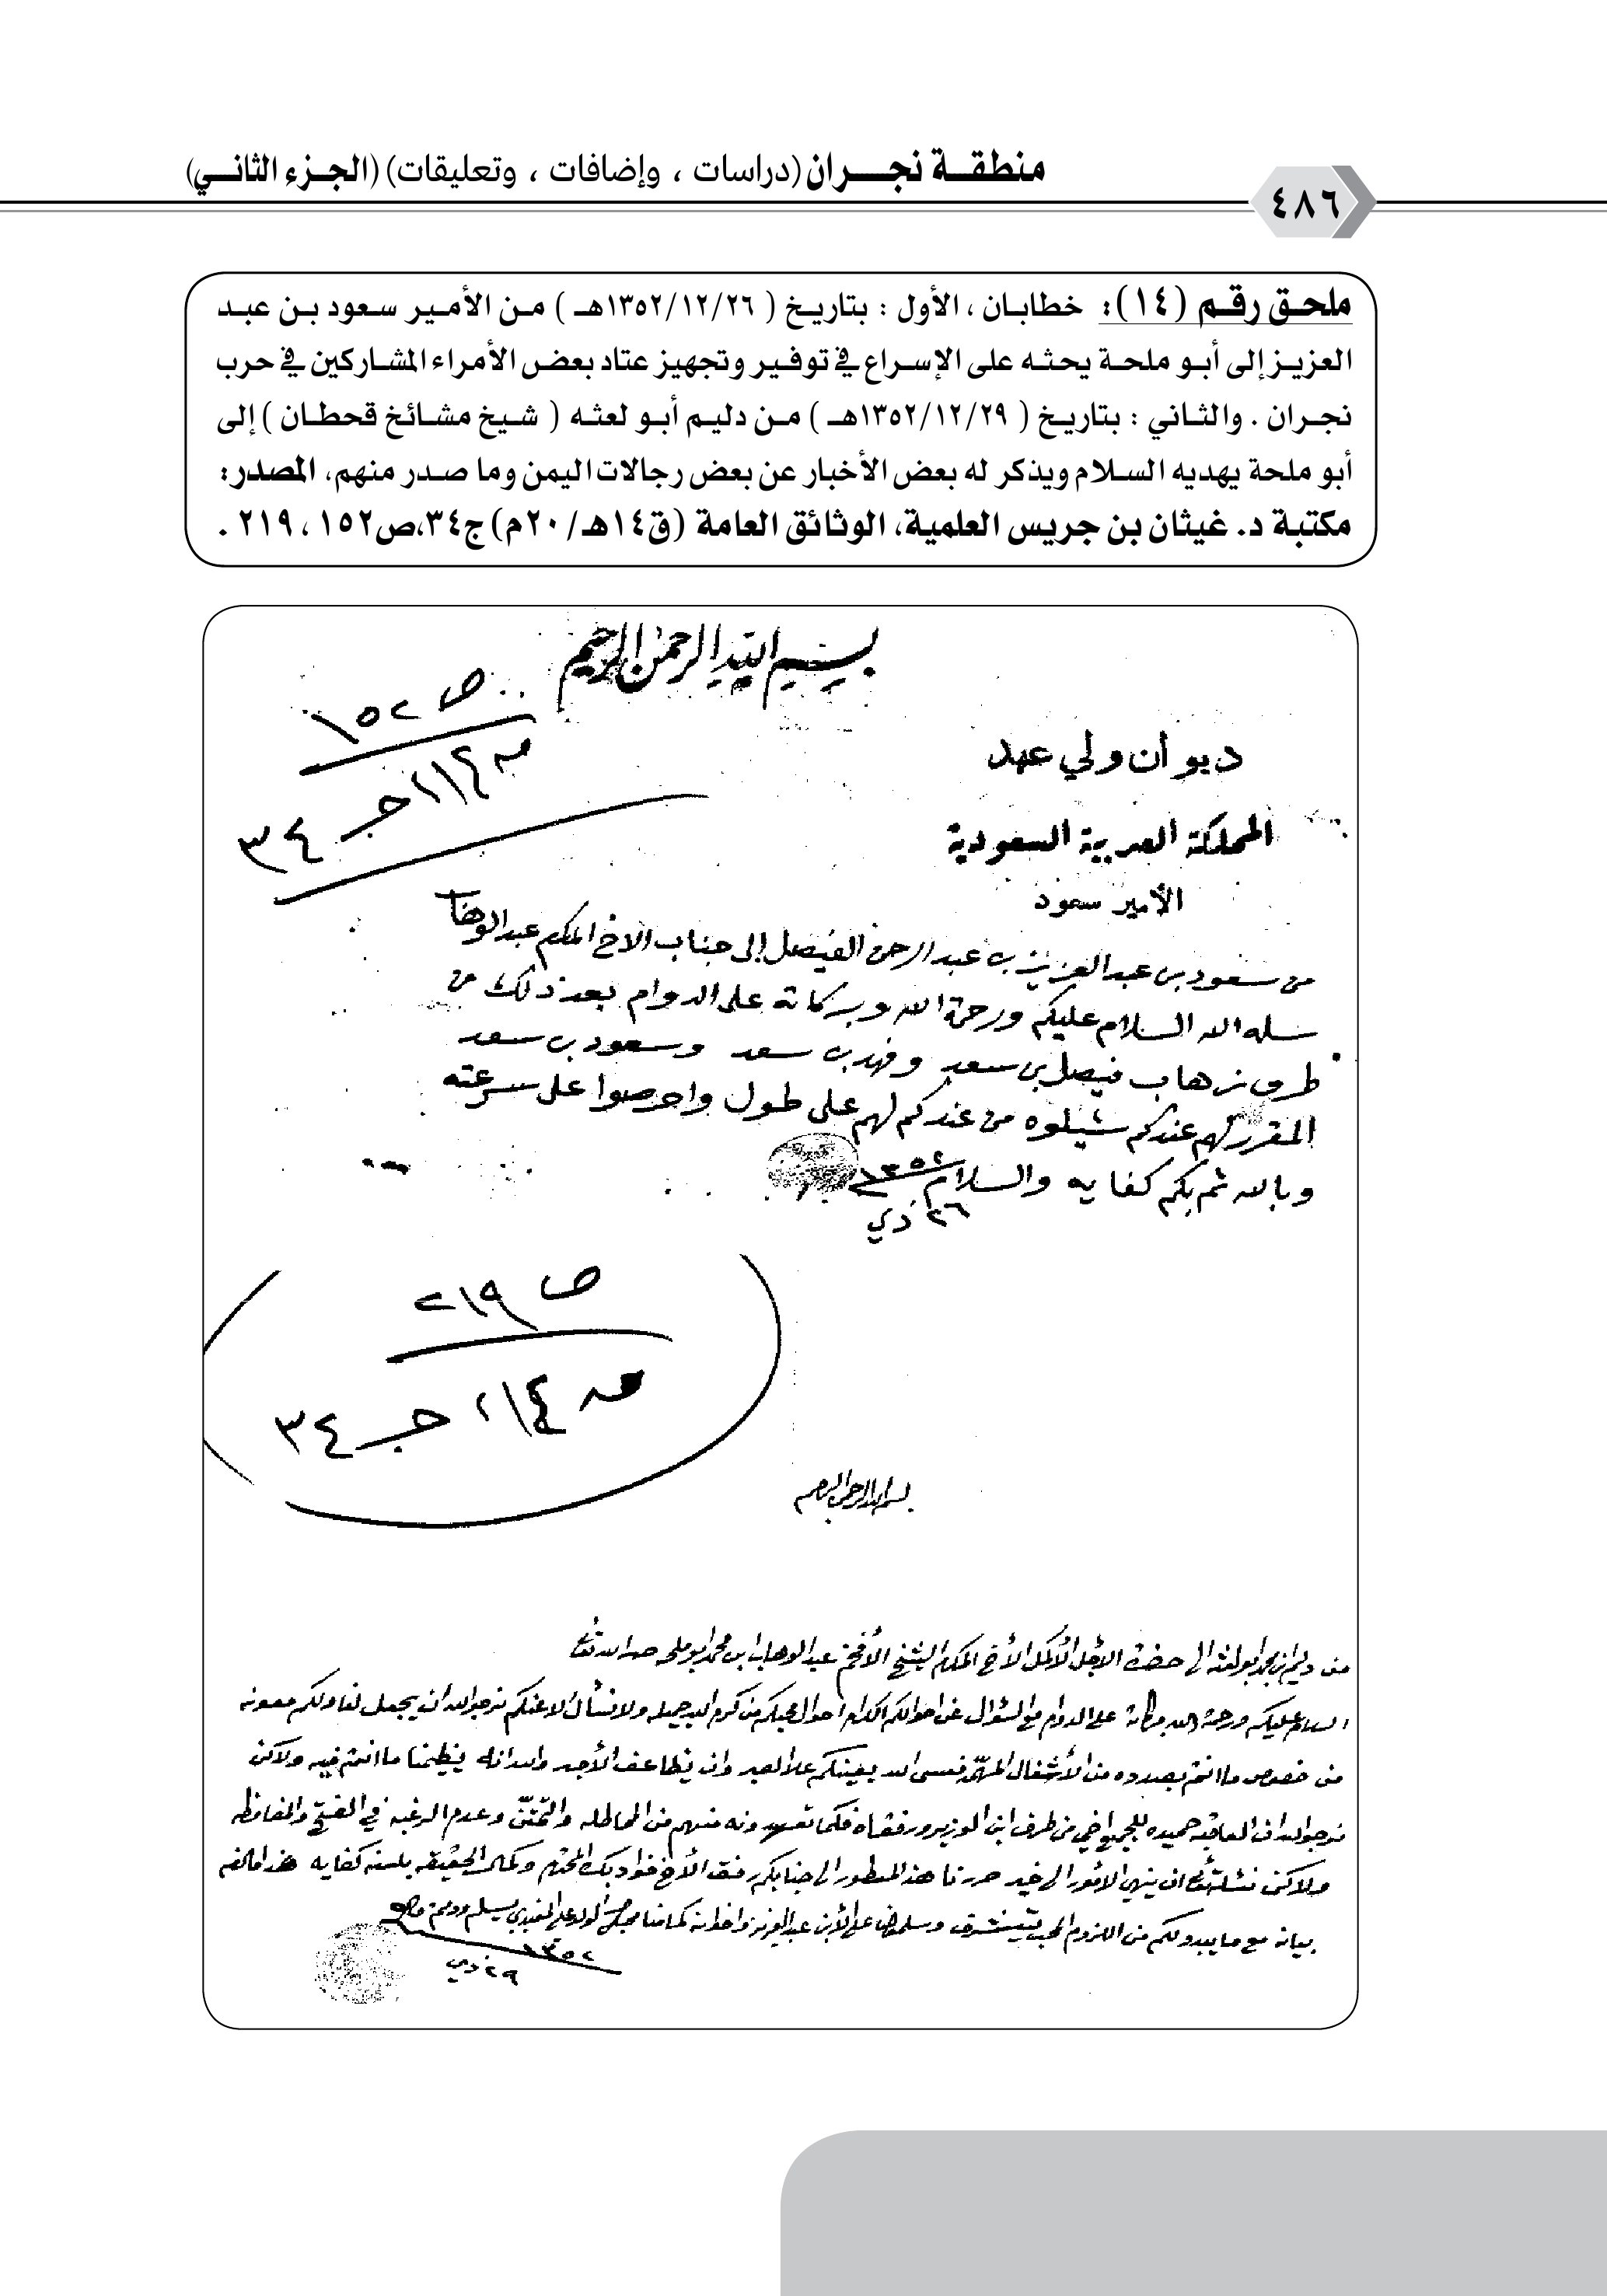 منطقة نجران (دراسات ، وإضافات ، وتعليقات) (الجزء الثاني)
٤٨٦
ملحق رقم (١٤): خطابان ، الأول : بتاريخ ( ١٣٥٢/١٢/٢٦هـ ) من الأمير سعود بن عبد
العزيز إلى أبو ملحة يحثه على الإسراع في توفير وتجهيز عتاد بعض الأمراء المشاركين في حرب
نجران . والثاني : بتاريخ ( ١٣٥٢/١٢/٢٩هـ ) من دليم أبو لعثه ( شيخ مشائخ قحطان ) إلى
أبو ملحة يهديه السلام ويذكر له بعض الأخبار عن بعض رجالات اليمن وما صدر منهم، المصدر:
مكتبة د. غيثان بن جريس العلمية، الوثائق العامة (ق١٤هـ/٢٠م) ج٣٤،ص١٥٢ ، ٢١٩ .
بسم الله الرحمن الرحيم
ص ١٥٢
جـ ٣٤
ديوان ولي عهد
المملكة العربية السعودية
الأمير سعود
من سعود بن عبد العزيز بن عبد الرحمن الفيصل إلى جناب الاخ المكرم عبد الوهاب
سلمه الله السلام عليكم ورحمة الله وبركاته على الدوام بعد ذلك من
طرف زهاب فيصل بن سعد وفهد بن سعد وسعود بن سعد
المقرر لهم عندكم شيلوه من عندكم لهم على طول واحرصوا على سرعته
وبالله ثم بكم كفايه والسلام ١٣٥٢
٢٦ ذي
ص ٢١٩
جـ ٣٤
بسم الله الرحمن الرحيم
من دليم ابن محمد ابو لعثه الى حضرة الاجل الأكمل الأخ المكرم الشيخ الأفخم عبد الوهاب ابن محمد ابو ملحه
السلام عليكم ورحمة الله وبركاته على الدوام مع السؤال عن احوالكم احوال محبكم من كرم الله جميله ولا نسأل الا عنكم نرجو الله ان يجعل لنا ولكم معونه
من خصوص ما انتم بصدده من الأشغال المهمة فعسى الله يعينكم على الصبر وان يظاعف الأجر والله انه ما انتم فيه ولاكن
نرجو الله ان العاقبه حميده للجميع من طرف ابن الوزير ورفقاه فكما تعهدونه منهم من المماطله وعدم الرغبه في الفتح
ولاكن ان ينهي الأمور الى خير حررنا هذا المسطور الى جنابكم رفق الأخ فواد بك المحترم وكمال الحقيقه بلسنه كفايه هذا ما لزم
بيانه مع ما يبدو لكم من اللزوم المحب يتشرف وسلموا على الأبن عبد العزيز واخوانه كما منا الولد علي يسلم ودمتم
١٣٥٢
٢٩ ذي